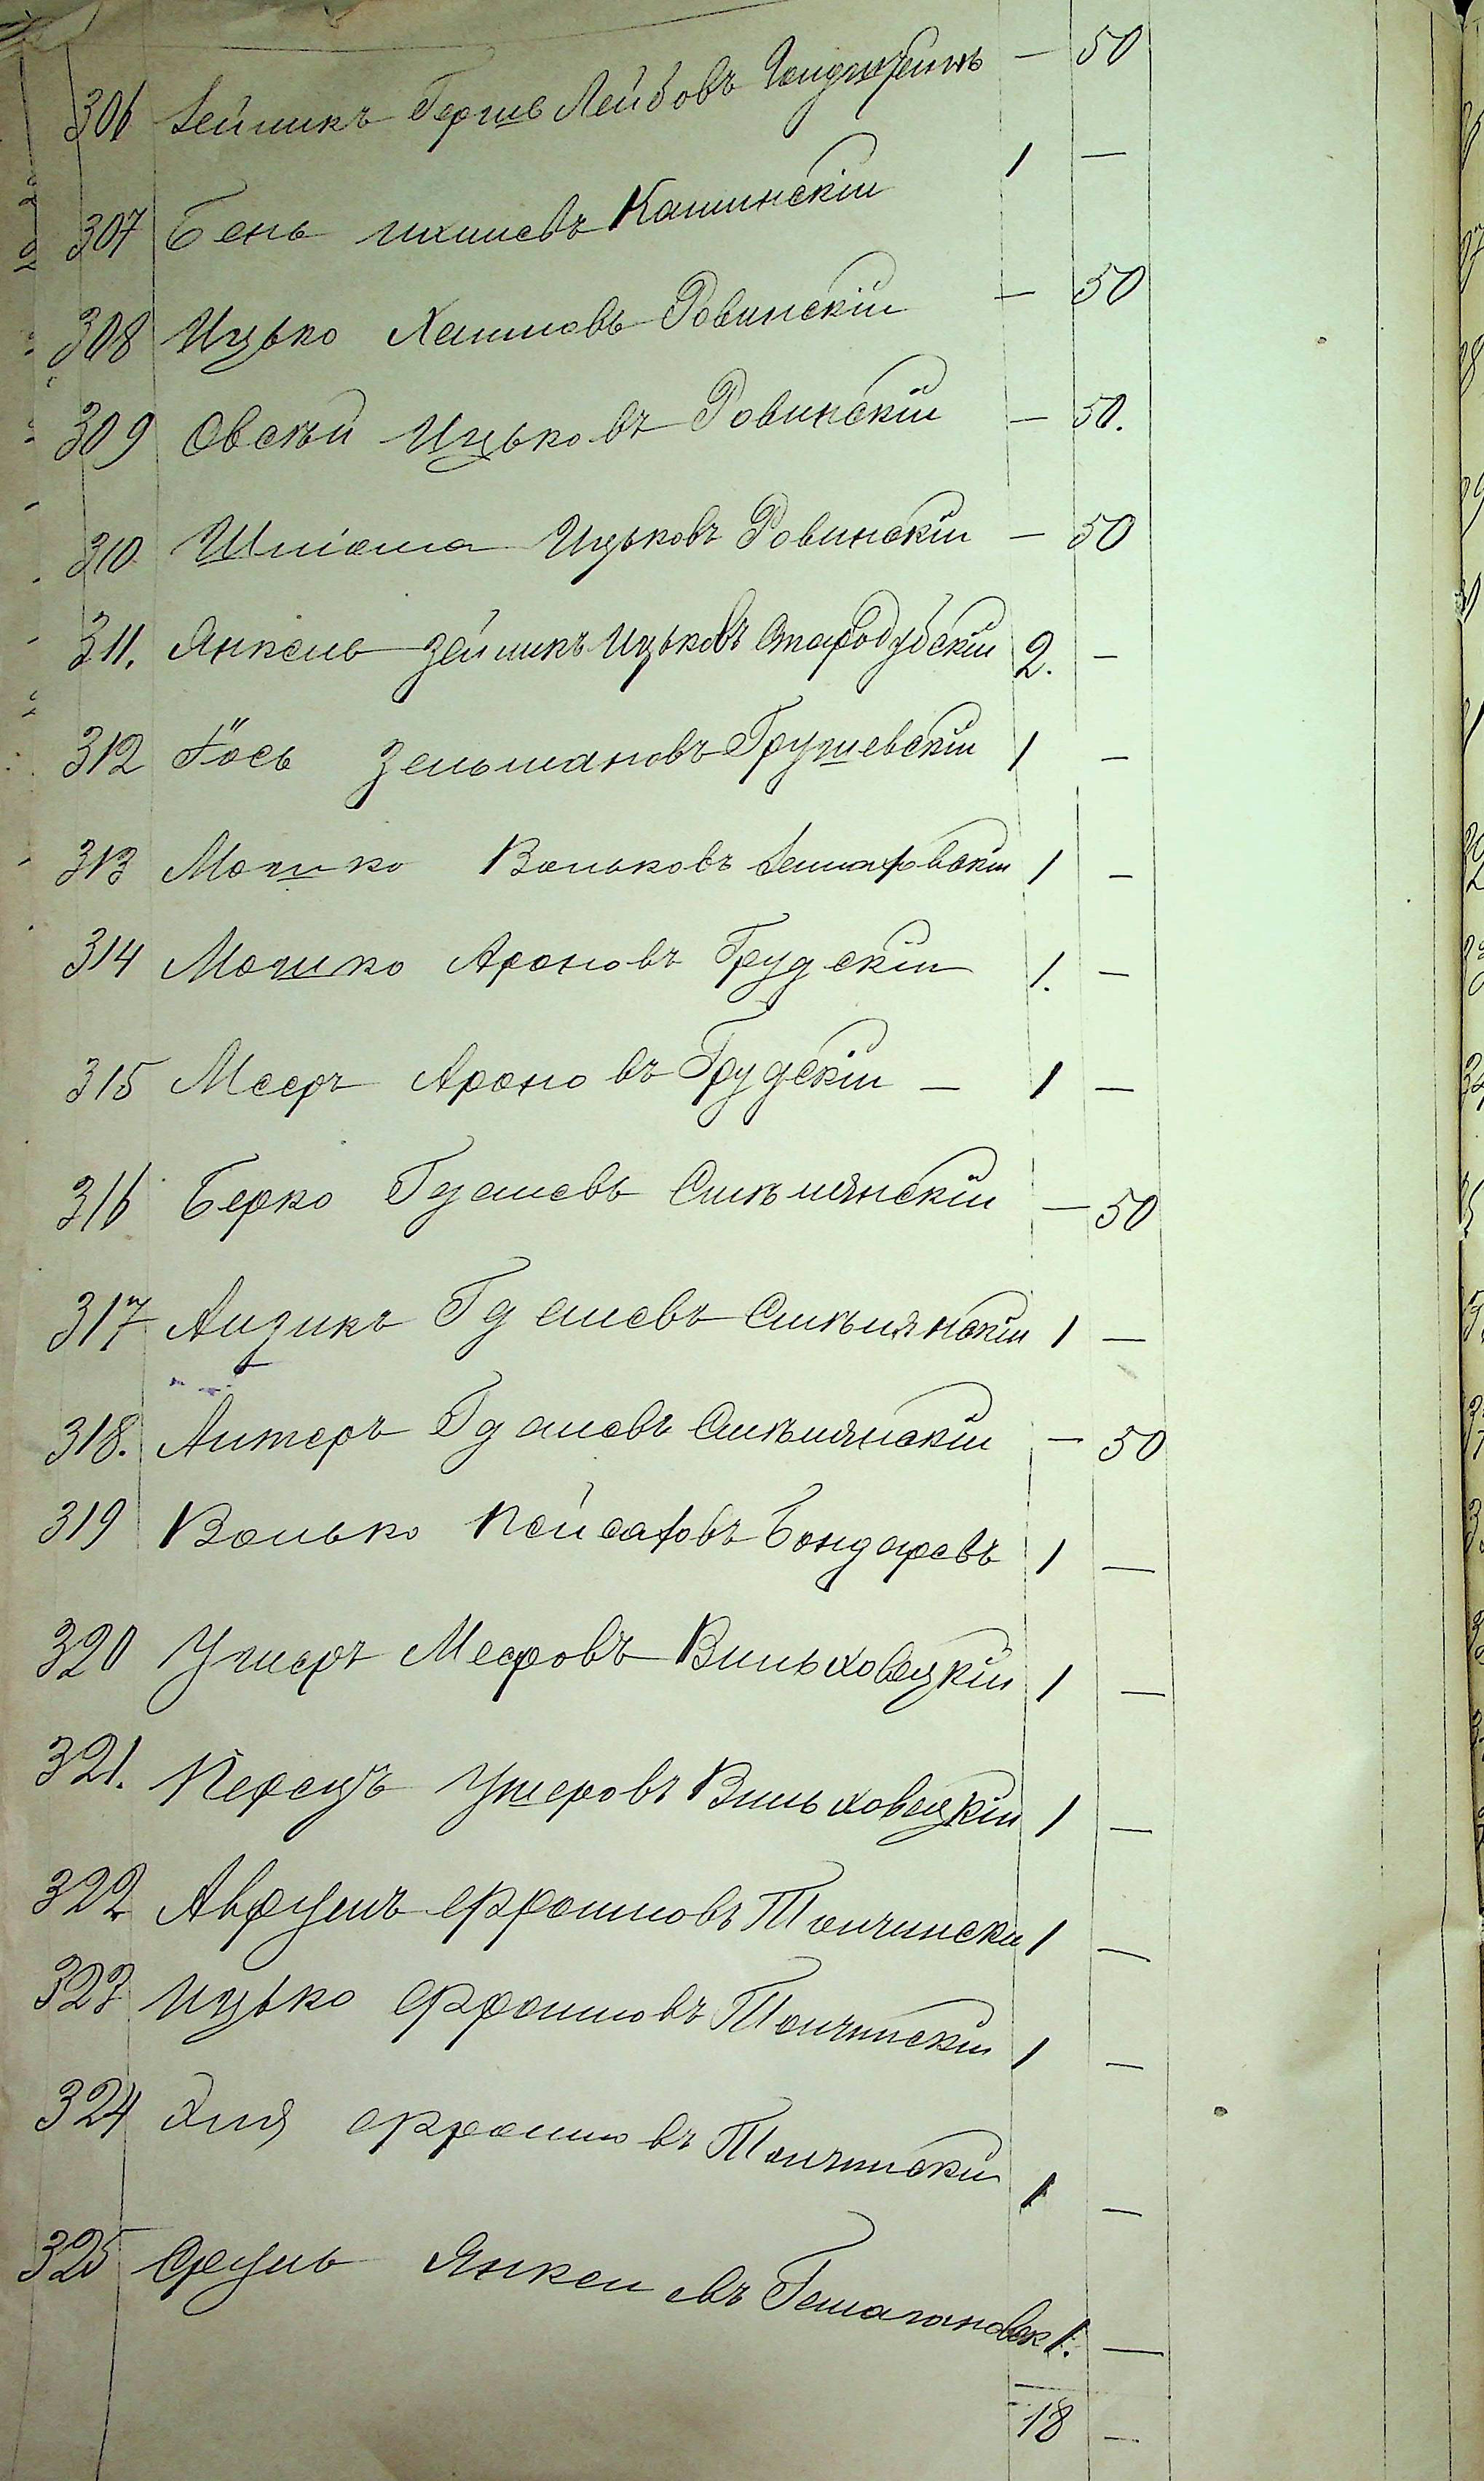 306 Зейликъ Гершъ Лейбовъ — 50
307 Бень Каминскій 1 —
308 Ицько Хаимовъ Ровинскій — 50
309 Овсѣй Ицьковъ Ровинскій — 50.
310 Шліома Ицьковъ Ровинскій — 50
311. Янкель Зейликъ Ицьковъ Стародубскій 2. —
312 Іось Зельмановъ Грушевскій 1 —
313 Мошко Вольковъ 1 —
314 Мошко Ароновъ Грудскій 1. —
315 Мееръ Ароновъ Грудскій — 1 —
316 Берко Гдалевъ Смѣлянскій — 50
317 Аизикъ Гдалевъ Смѣлянскій 1 —
318. Алтеръ Гдалевъ Смѣлянскій — 50
319 Волько Пейсаховъ Бондаревъ 1 —
320 Ушеръ Мееровъ Вильховецкій 1 —
321. Перецъ Ушеровъ Вильховецкій 1 —
322 Аврумъ Фроимовъ Толчински 1 —
323 Ицько Фроимовъ Толчинскій 1 —
324 Фроимовъ Толчински 1 —
325 Сруль Янкелевъ 1. —
18 —